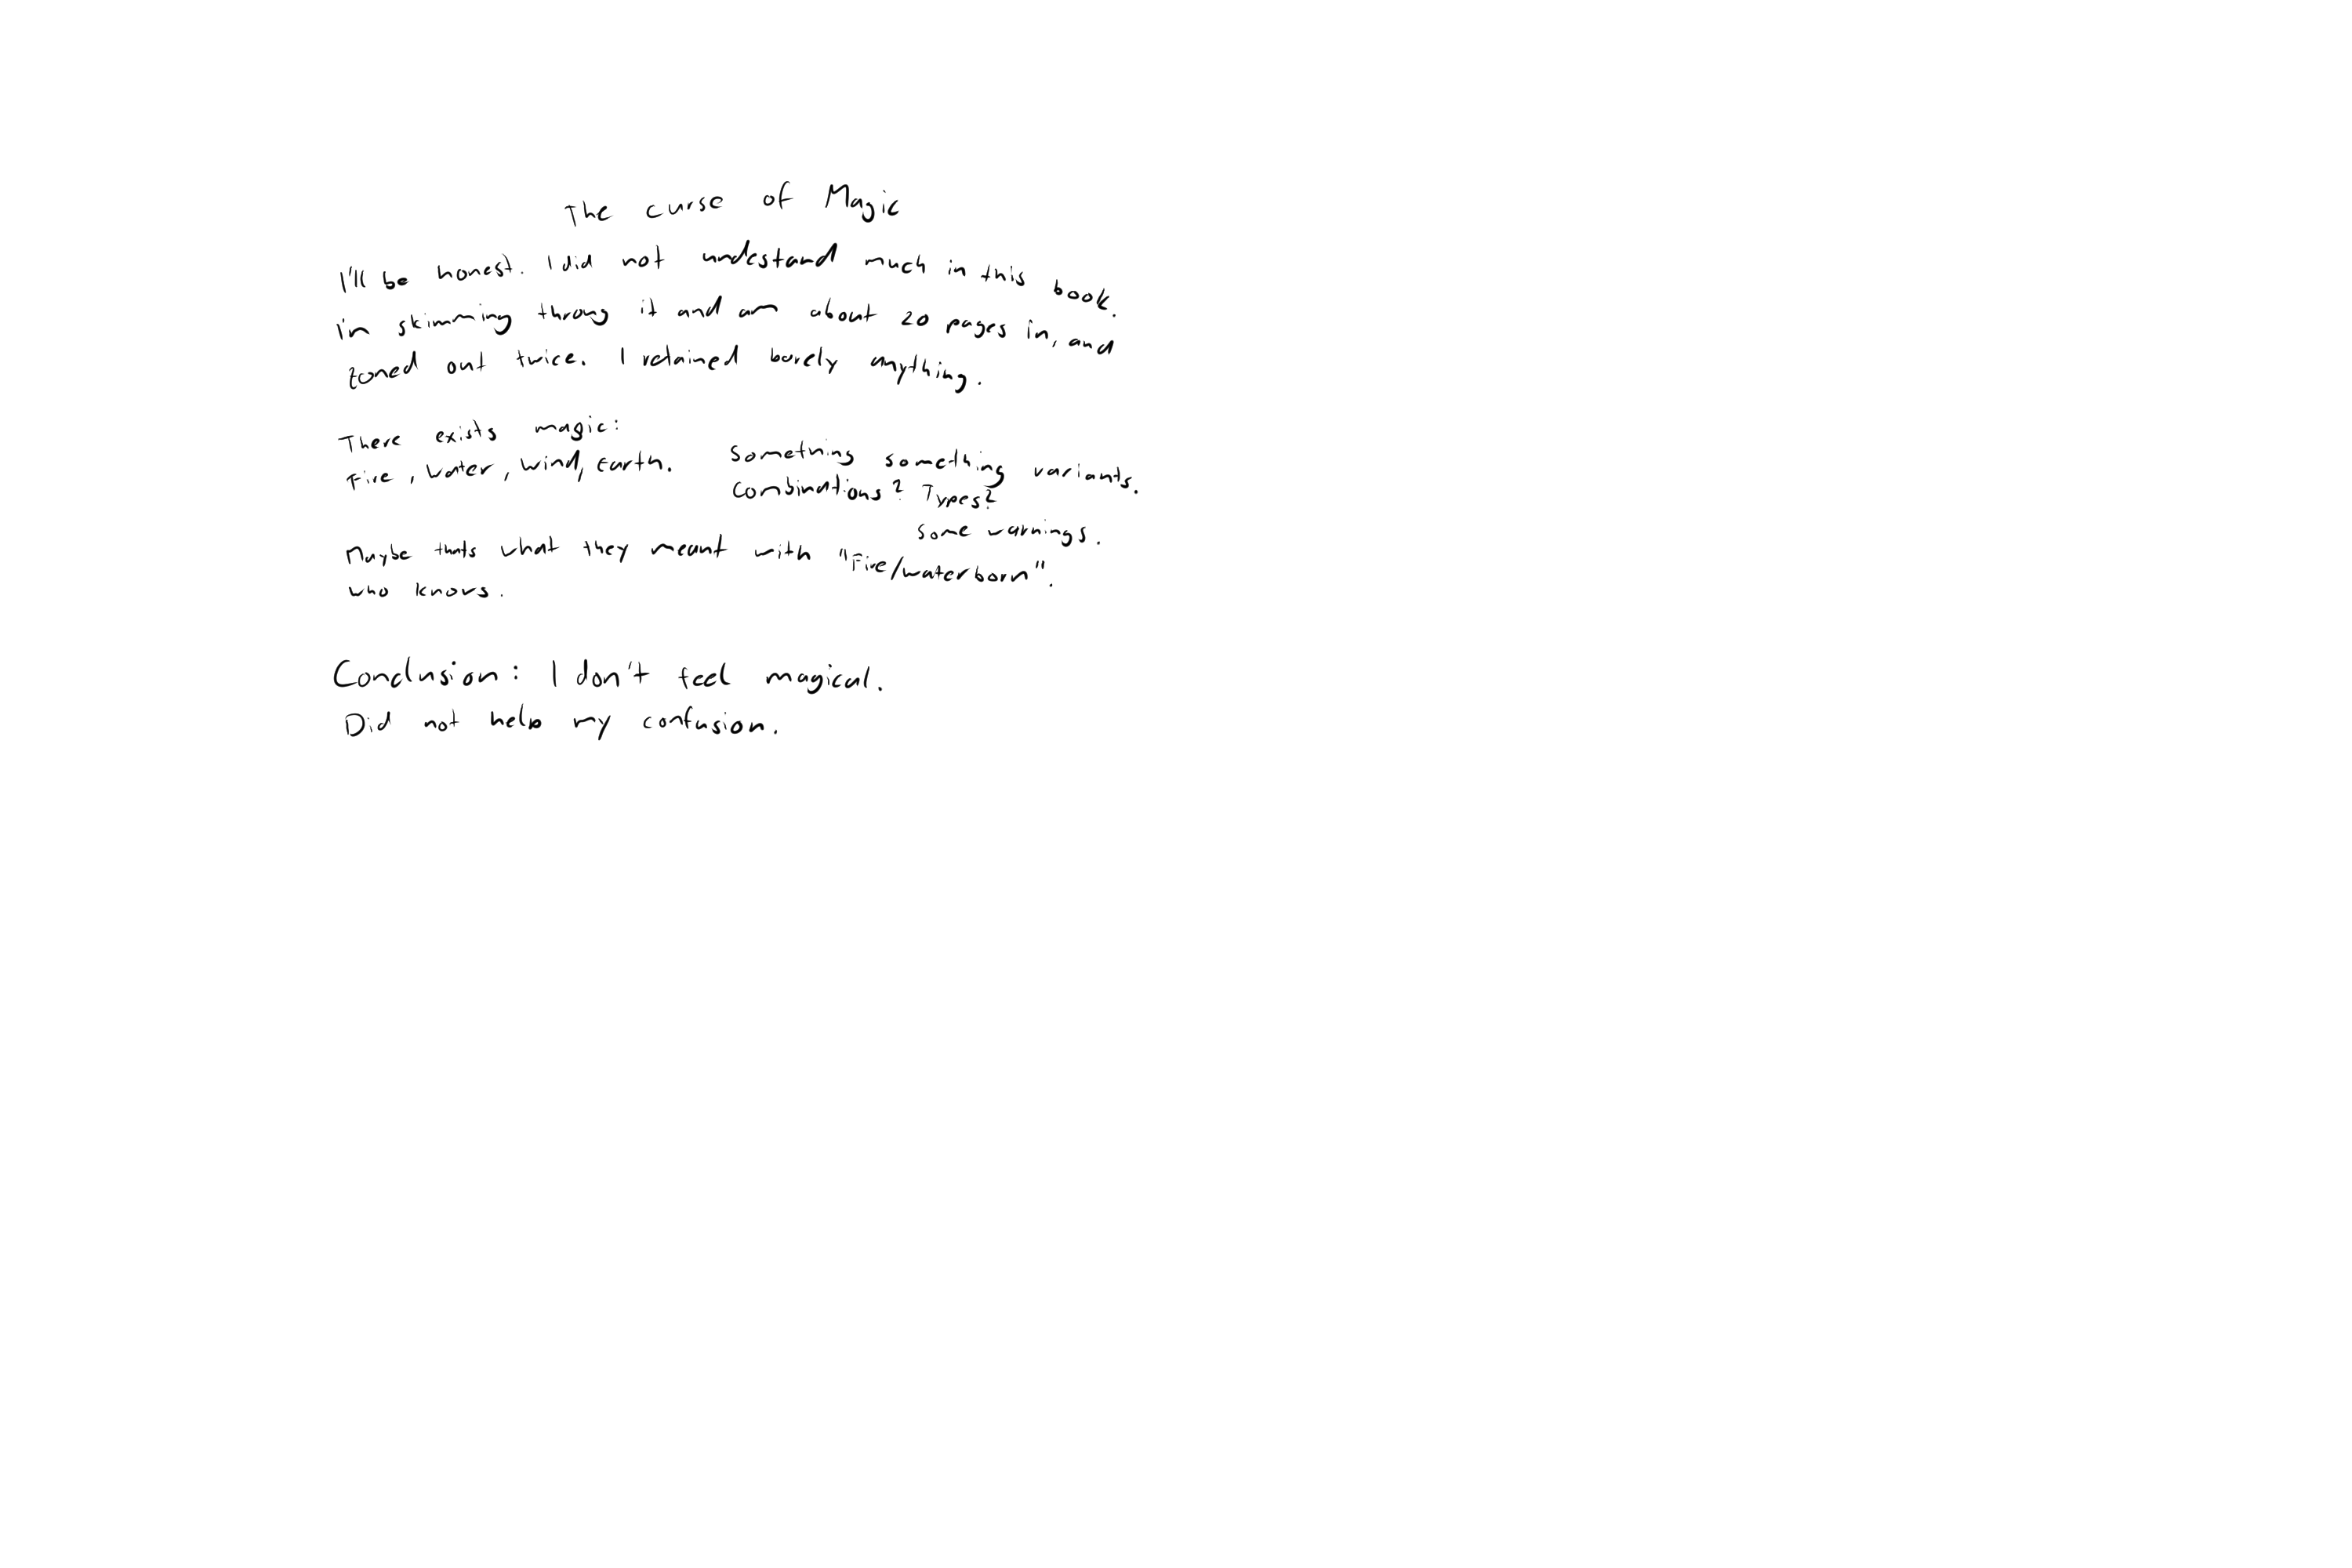 The curse of Magic
I'll be honest. I did not undestand much in this book.
I'm skimming throug it and am about 20 pages in, and
zoned out twice. I retained barely anything.
There exists magic:
Fire, Water, Wind, Earth.
Something something variants.
Combinations? Types?
Some warnings.
Maybe thats what they meant with "Fire/waterborn".
who knows.
Conclusion: I don't feel magical.
Did not help my confusion.